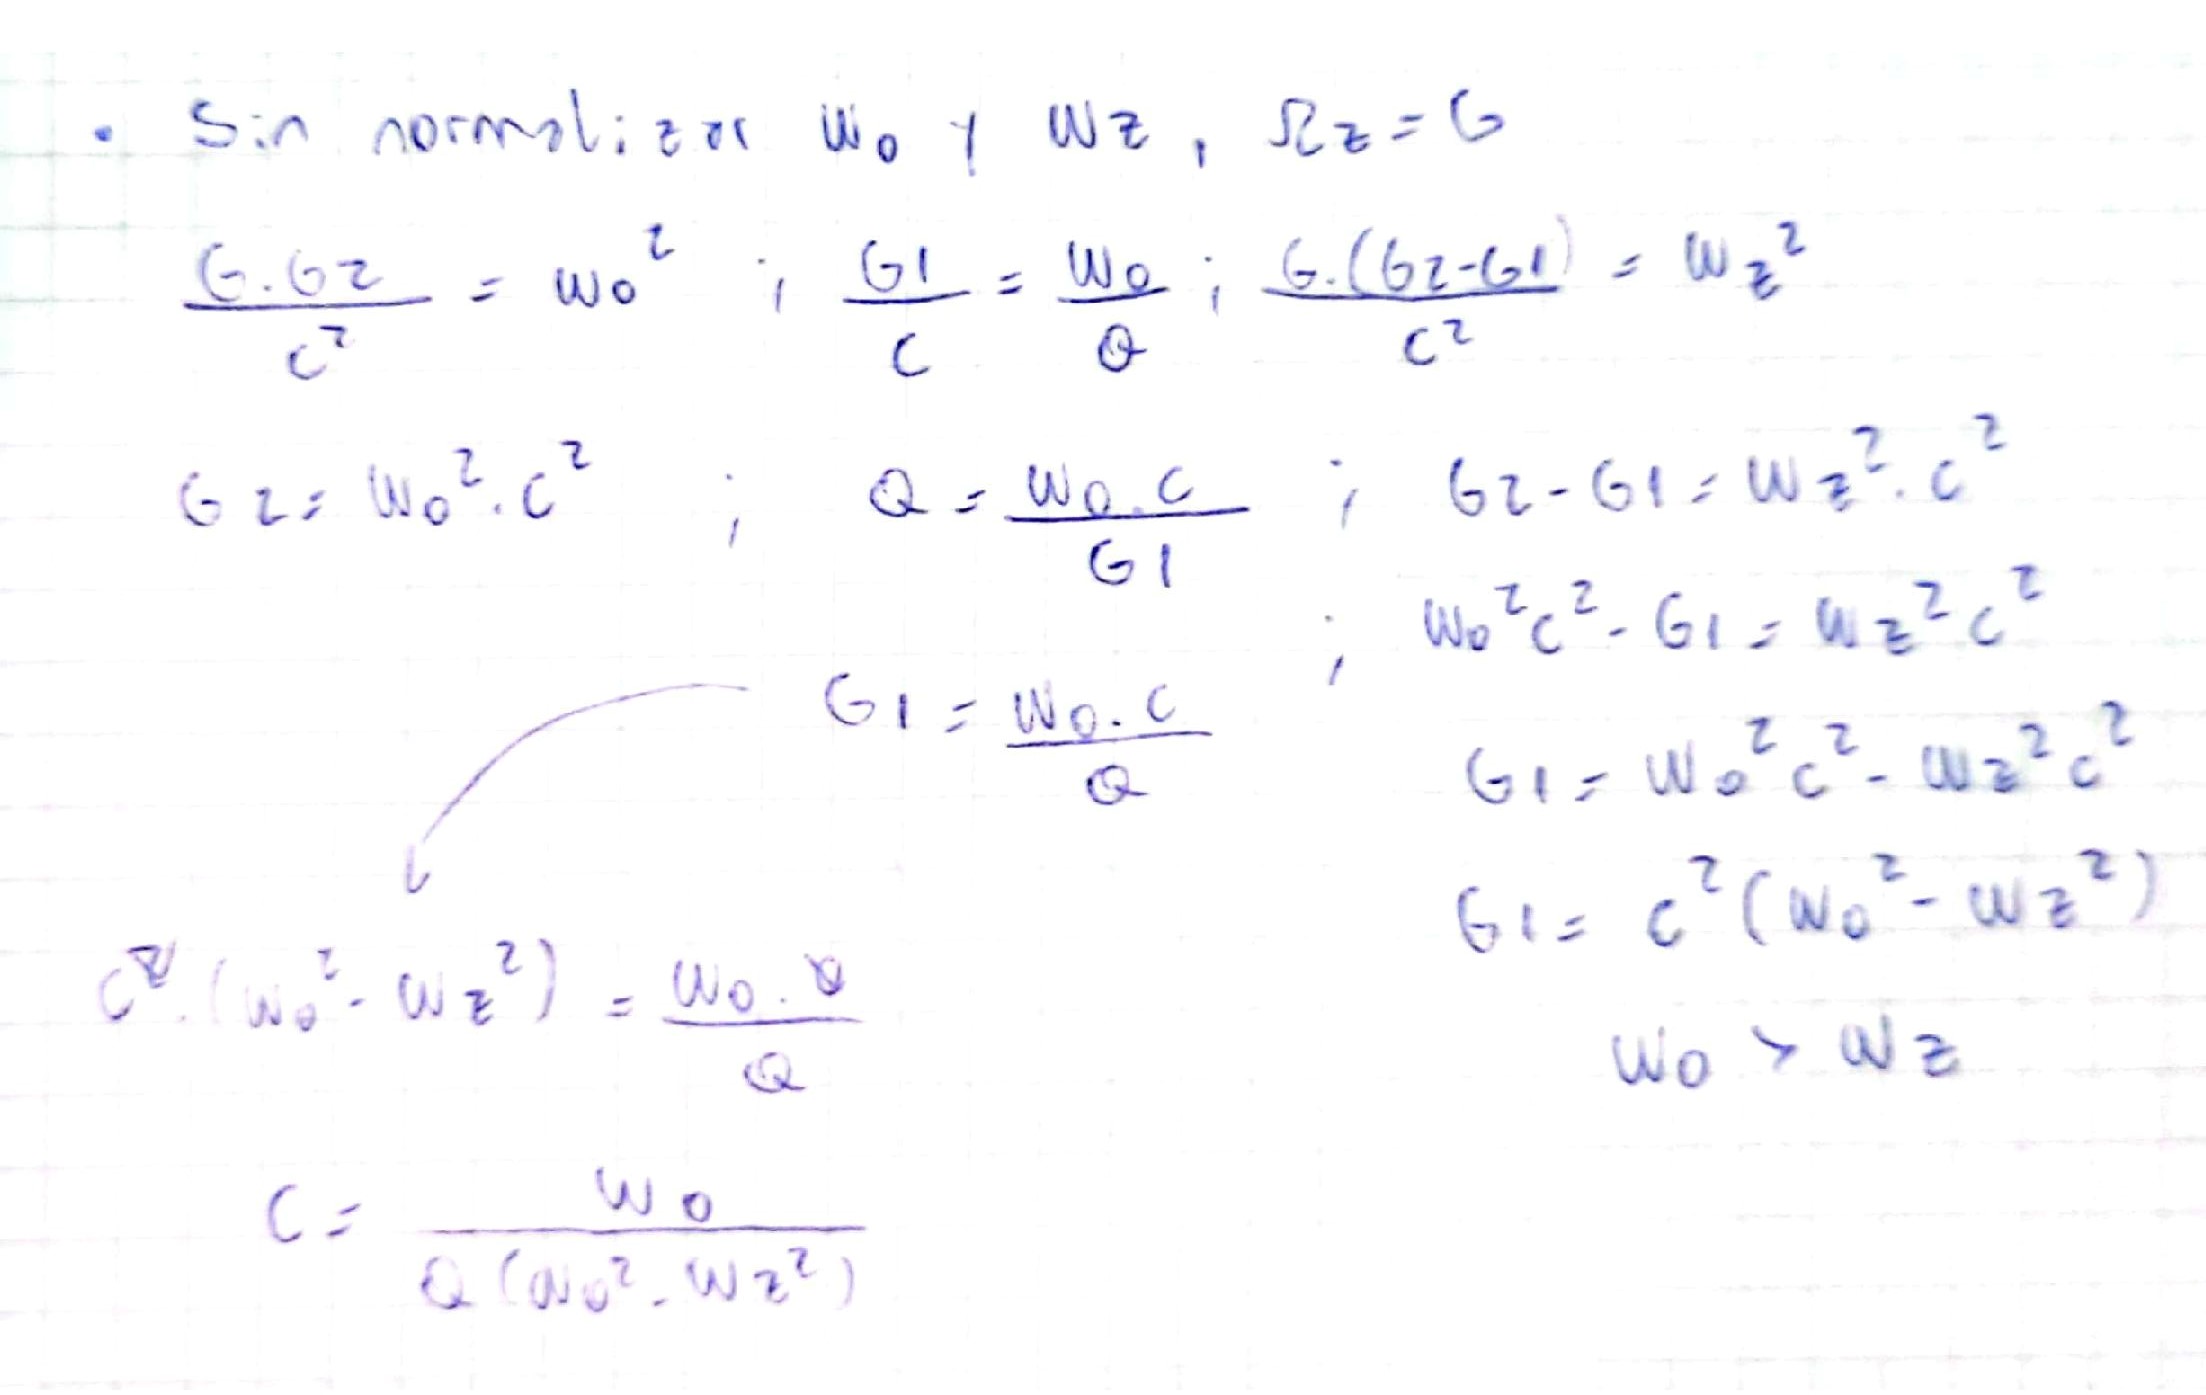 • Sin normalizar W₀ y Wz, Ωz = G
G.G2/C² = W₀² ; G1/C = W₀/Q ; G.(G2-G1)/C² = Wz²
G2 = W₀².C² ; Q = W₀.C/G1 ; G2-G1 = Wz².C²
; W₀²C² - G1 = Wz²C²
G1 = W₀.C/Q
G1 = W₀²C² - Wz²C²
G1 = C²(W₀² - Wz²)
C².(W₀² - Wz²) = W₀.C/Q
W₀ > Wz
C = W₀/Q(W₀² - Wz²)